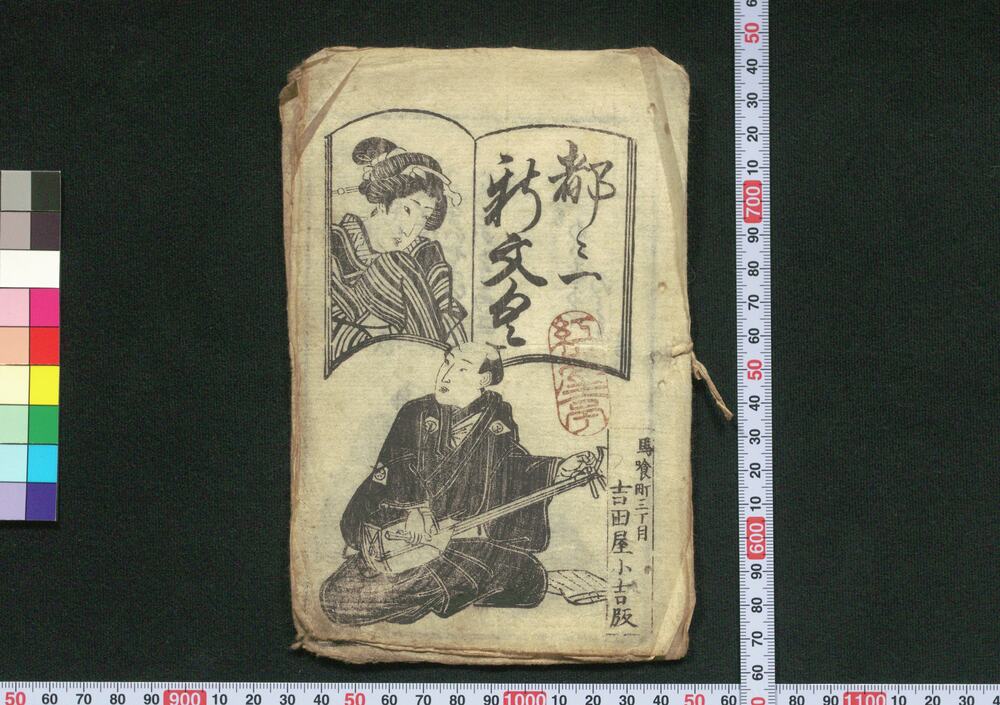 都々一
新文句
馬喰町三丁目
吉田屋小吉版
50
40
30
20
10
700
90
80
70
60
50
40
30
20
10
600
90
80
70
60
50
60
70
80
90
900
10
20
30
40
50
60
70
80
90
1000
10
20
30
40
50
60
80
90
1100
10
20
30